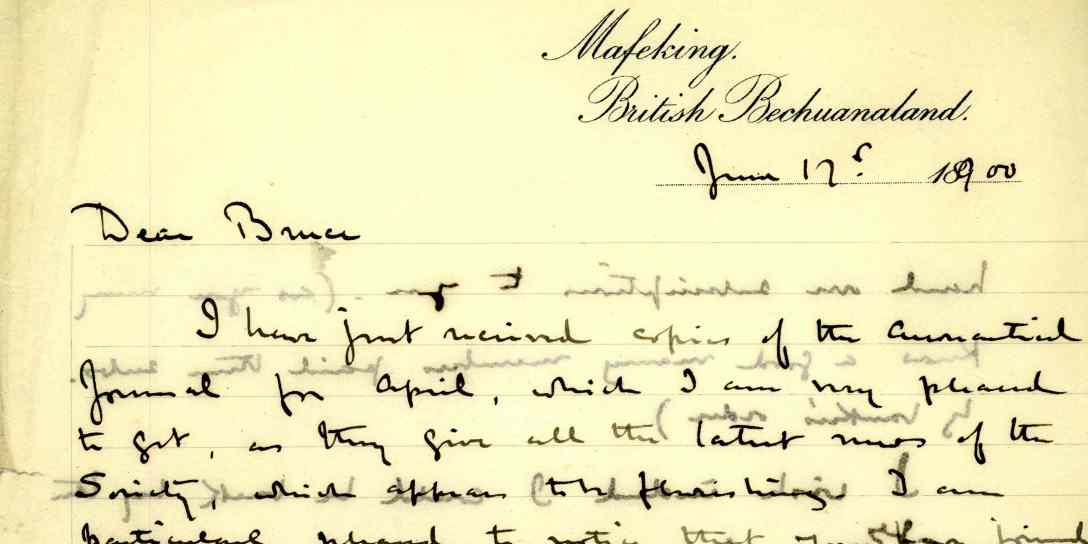 Mafeking.
British Bechuanaland.
June 17th 1900
Dear Bruce
I have just received copies of the Aeronautical
Journal for April, which I am very pleased
to get, as they give all the latest news of the
Society, which appears to be flourishing. I am
particularly pleased to notice that